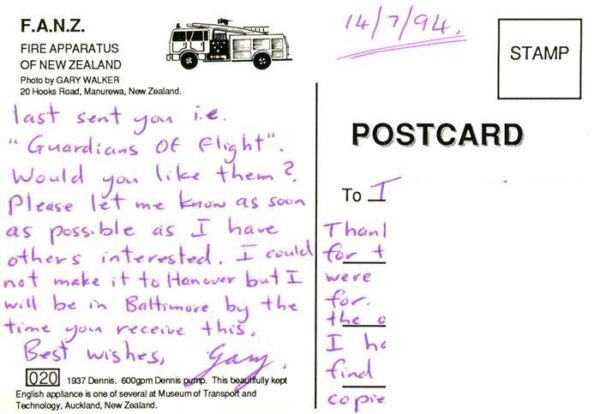 F.A.N.Z.
FIRE APPARATUS
OF NEW ZEALAND
Photo by GARY WALKER
20 Hooks Road, Manurewa, New Zealand.
last sent you i.e.
"Guardians Of Flight".
Would you like them?
Please let me know as soon
as possible as I have
others interested. I could
not make it to Hanover but I
will be in Baltimore by the
time you receive this.
Best wishes, Gary.
020 1937 Dennis. 600gpm Dennis pump. This beautifully kept
English appliance is one of several at Museum of Transport and
Technology, Auckland, New Zealand.
14/7/94.
STAMP
POSTCARD
To I
for
were
for.
the
I
find